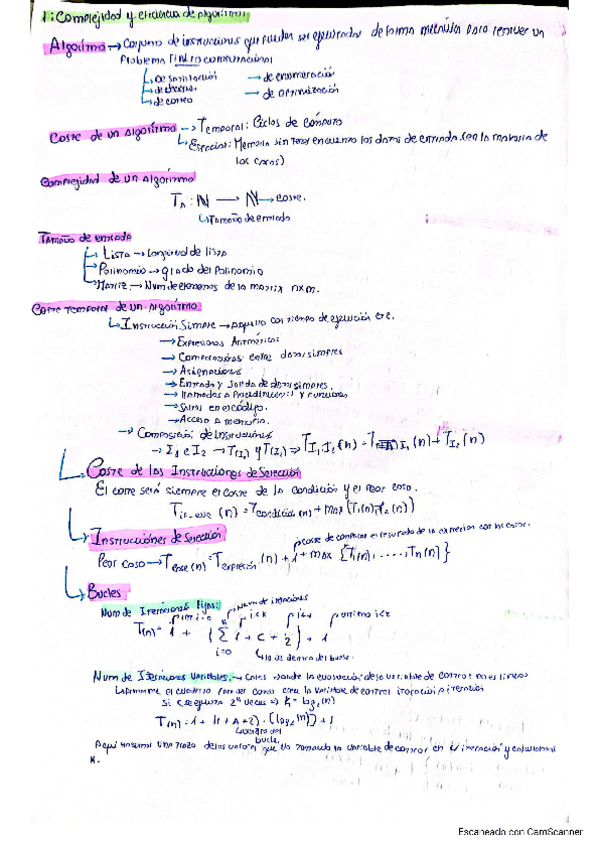 1: Complejidad y eficiencia de algoritmos
Algoritmo → Conjunto de instrucciones que puedan ser ejecutadas de forma mecánica para resolver un
Problema computacional
↳ De satisfacción → de enumeración
↳ de → de optimización
↳ de conteo
Coste de un Algoritmo → Temporal: Ciclos de cómputo
↳ Espacial: Memoria sin tener en cuenta los datos de entrada. (en la mayoría de
los casos)
Complejidad de un Algoritmo
T_A : ℕ → ℕ → coste.
↳ Tamaño de entrada
Tamaño de entrada
↳ Lista → Longitud de lista
↳ Polinomio → grado del Polinomio
↳ Matriz → Num de elementos de la matriz nxm.
Coste Temporal de un Algoritmo
↳ Instrucción Simple → Aquella con tiempo de ejecución cte.
→ Expresiones Aritméticas
→ Comparaciones entre datos simples
→ Asignaciones
→ Entrada y salida de datos simples.
→ llamadas a Procedimientos y Funciones
→ Saltos en el código.
→ Acceso a memoria.
→ Composición de Instrucciones
→ I1 e I2 → T(I1) y T(I2) ⇒ T I1,I2 (n) = T I1 (n) + T I2 (n)
↳ Coste de las Instrucciones de Selección
El coste será siempre el coste de la condición y el peor caso.
T if-else (n) = T condición (n) + max (T1(n), T2(n))
↳ Instrucciones de Selección
coste de comparar el resultado de la expresion con
Peor caso → T case (n) = T expresión (n) + 1 + max {T1(n), ...., Tn(n)}
↳ Bucles
Num de Iteraciones Fijas:
Num de iteraciones
i=0 i<k i++ ultimo i<k
T(n) = 1 + (Σ 1 + C + 2) + 1
i=0 ↳ lo de dentro del bucle.
Num de Iteraciones Variables. → Casos donde la evolución de la variable de control no es lineal
↳ iteración a iteración
Si 2^k veces ⇒ k = log2(n)
T(n) = 1 + (1 + A + 2) · (log2(n)) + 1
bucle.
Aqui hacemos una traza de los valores que va tomando la variable de control en la iteración y
k.
Escaneado con CamScanner